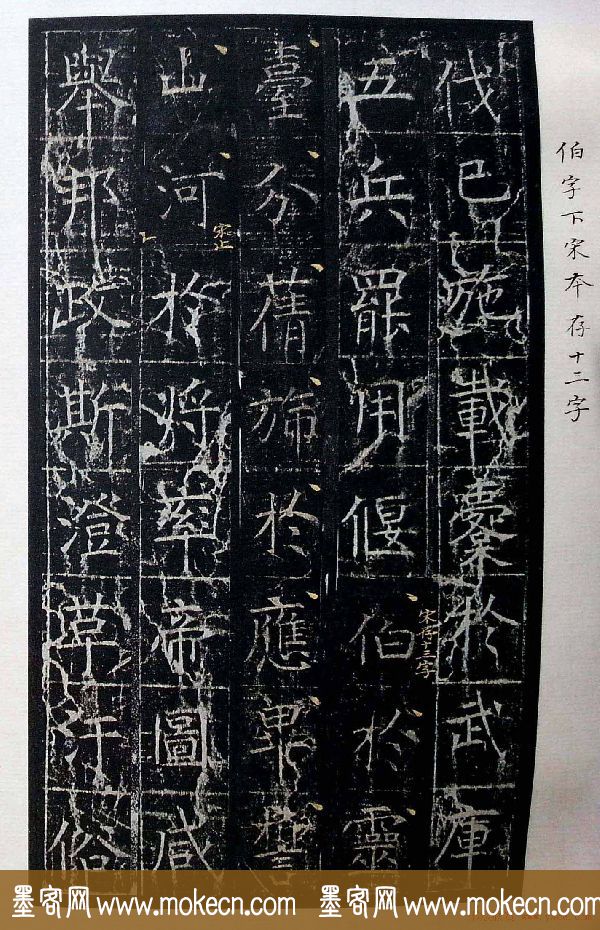 伯字下宋本存十二字
伐已施載櫜於武庫
五兵罷用偃伯於靈
宋存十三字
臺分蒨旆於應畢
山河於將
帝圖咸
宋止
舉邦政斯澄草汙俗
墨客网 www.mokecn.com 墨客网 www.mokecn.com